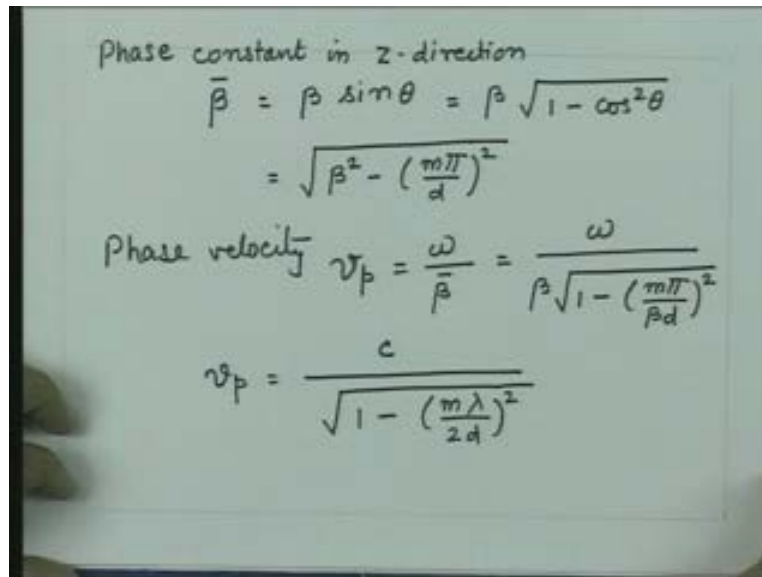 Phase constant in z-direction
β̄ = β sinθ = β √(1 - cos²θ)
= √(β² - (mπ/d)²)
Phase velocity v_p = ω/β̄ = ω/(β√(1 - (mπ/βd)²))
v_p = c/√(1 - (mλ/2d)²)